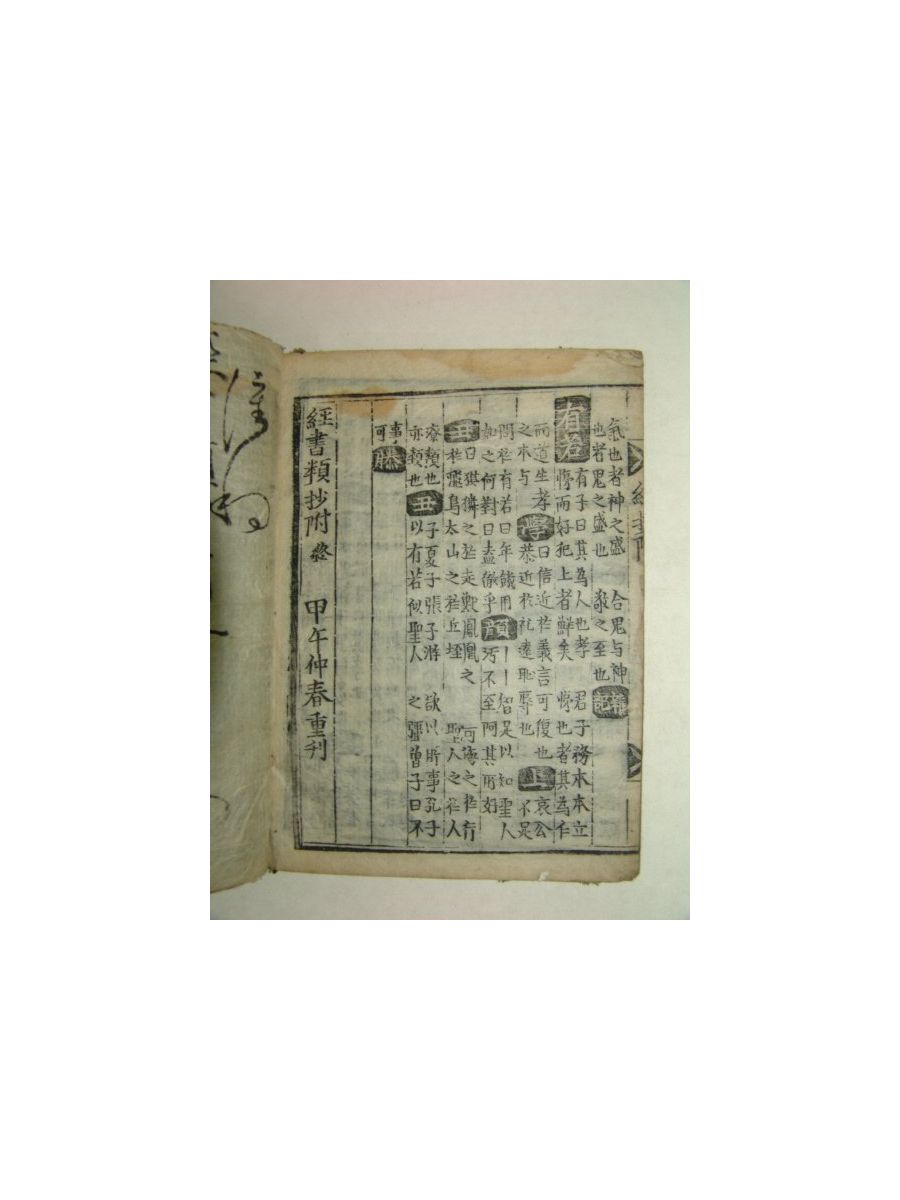 氣也者神之盛 合鬼与神
也者鬼之盛也 敎之至也 禮記
有若 有子曰其為人也孝 君子務本本立
悌而好犯上者鮮矣 悌也者其為仁
而道生孝 學 曰信近於義言可復也 哀公
之本与 恭近於礼遠恥辱也 上 不是
問於有若曰年饑用 顔 丨丨智足以知聖人
如之何對曰盍徹乎 汚不至阿其所好
丑 曰麒麟之於走獸鳳凰之 河海之於行
於飛鳥太山之於丘垤 聖人之於人
類也 丑 子夏子張子游 欲以所事孔子
亦類也 以有若似聖人 之彊曾子曰不
事 滕
可
經書類抄附 終 甲午仲春重刊